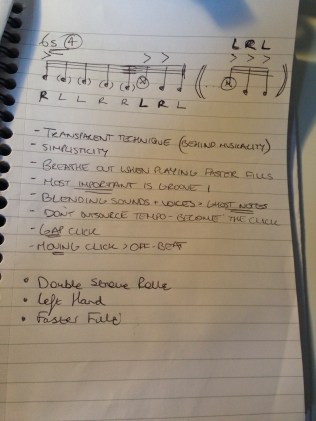 6s ④
L R L
R L L R R L R L
- TRANSPARENT TECHNIQUE (BEHIND MUSICALITY)
- SIMPLISTICITY
- BREATHE OUT WHEN PLAYING FASTER FILLS
- MOST IMPORTANT IS GROOVE!
- BLENDING SOUNDS + VOICES > GHOST NOTES
- DON'T OUTSOURCE TEMPO - BECOME THE CLICK
- GAP CLICK
- MOVING CLICK > OFF-BEAT
• Double Stroke Rolls
• Left Hand
• Faster Fills